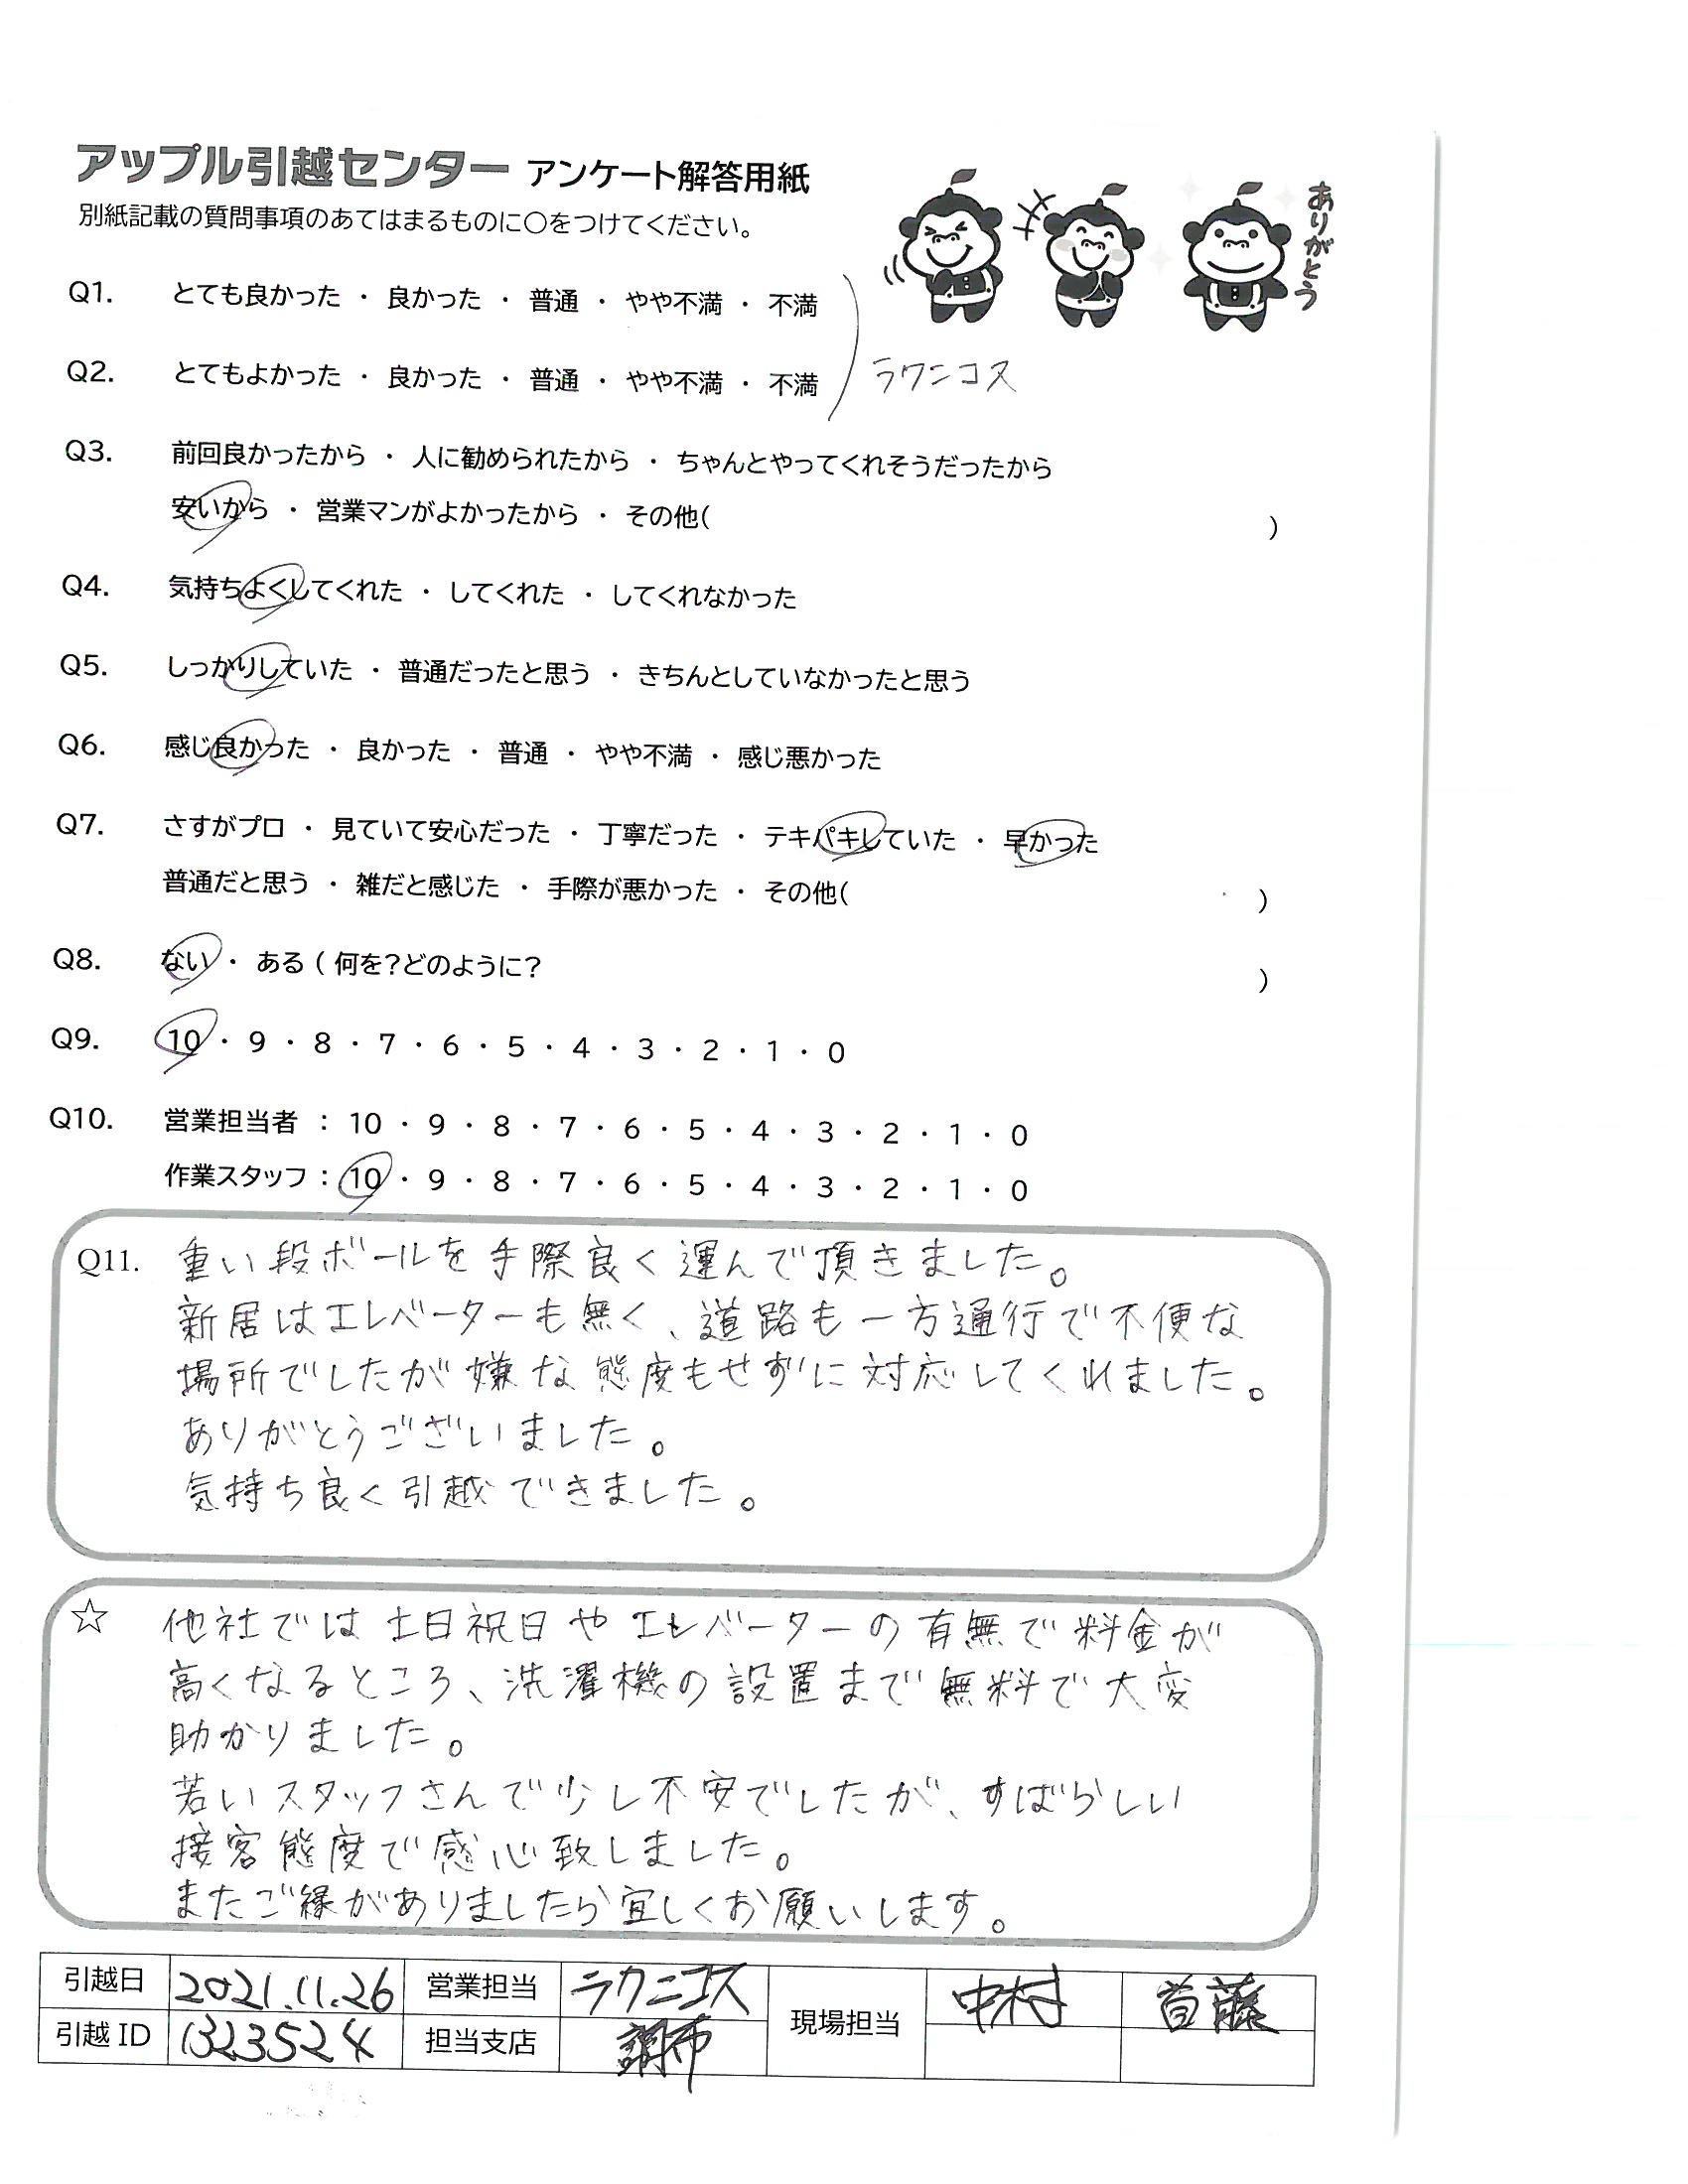 アップル引越センター アンケート解答用紙
別紙記載の質問事項のあてはまるものに〇をつけてください。
ありがとう
Q1. とても良かった ・ 良かった ・ 普通 ・ やや不満 ・ 不満
Q2. とてもよかった ・ 良かった ・ 普通 ・ やや不満 ・ 不満
ラクニコス
Q3. 前回良かったから ・ 人に勧められたから ・ ちゃんとやってくれそうだったから
安いから ・ 営業マンがよかったから ・ その他( )
Q4. 気持ちよくしてくれた ・ してくれた ・ してくれなかった
Q5. しっかりしていた ・ 普通だったと思う ・ きちんとしていなかったと思う
Q6. 感じ良かった ・ 良かった ・ 普通 ・ やや不満 ・ 感じ悪かった
Q7. さすがプロ ・ 見ていて安心だった ・ 丁寧だった ・ テキパキしていた ・ 早かった
普通だと思う ・ 雑だと感じた ・ 手際が悪かった ・ その他( )
Q8. ない ・ ある ( 何を?どのように? )
Q9. 10 ・ 9 ・ 8 ・ 7 ・ 6 ・ 5 ・ 4 ・ 3 ・ 2 ・ 1 ・ 0
Q10. 営業担当者 : 10 ・ 9 ・ 8 ・ 7 ・ 6 ・ 5 ・ 4 ・ 3 ・ 2 ・ 1 ・ 0
作業スタッフ : 10 ・ 9 ・ 8 ・ 7 ・ 6 ・ 5 ・ 4 ・ 3 ・ 2 ・ 1 ・ 0
Q11. 重い段ボールを手際良く運んで頂きました。
新居はエレベーターも無く、道路も一方通行で不便な
場所でしたが嫌な態度もせずに対応してくれました。
ありがとうございました。
気持ち良く引越できました。
☆ 他社では土日祝日やエレベーターの有無で料金が
高くなるところ、洗濯機の設置まで無料で大変
助かりました。
若いスタッフさんで少し不安でしたが、すばらしい
接客態度で感心致しました。
またご縁がありましたら宜しくお願いします。
引越日 2021.11.26 営業担当 ラクニコス 現場担当 中村 首藤
引越ID 1323524 担当支店 調布